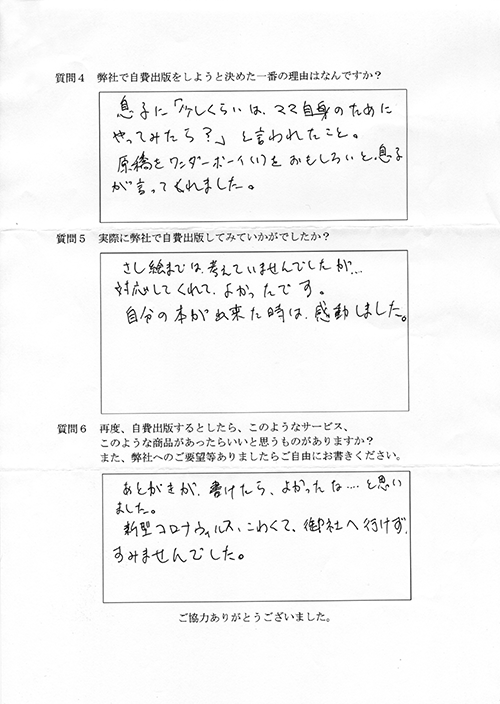 質問４ 弊社で自費出版をしようと決めた一番の理由はなんですか？
息子に「少しくらいは、ママ自身のために
やってみたら？」と言われたこと。
原稿をワンダーボーイ(い)をおもしろいと、息子
が言ってくれました。
質問５ 実際に弊社で自費出版してみていかがでしたか？
さし絵までは、考えていませんでしたが…
対応してくれて、よかったです。
自分の本が出来た時は、感動しました。
質問６ 再度、自費出版するとしたら、このようなサービス、
このような商品があったらいいと思うものがありますか？
また、弊社へのご要望等ありましたらご自由にお書きください。
あとがきが、書けたら、よかったな…と思い
ました。
新型コロナウィルス、こわくて、御社へ行けず、
すみませんでした。
ご協力ありがとうございました。